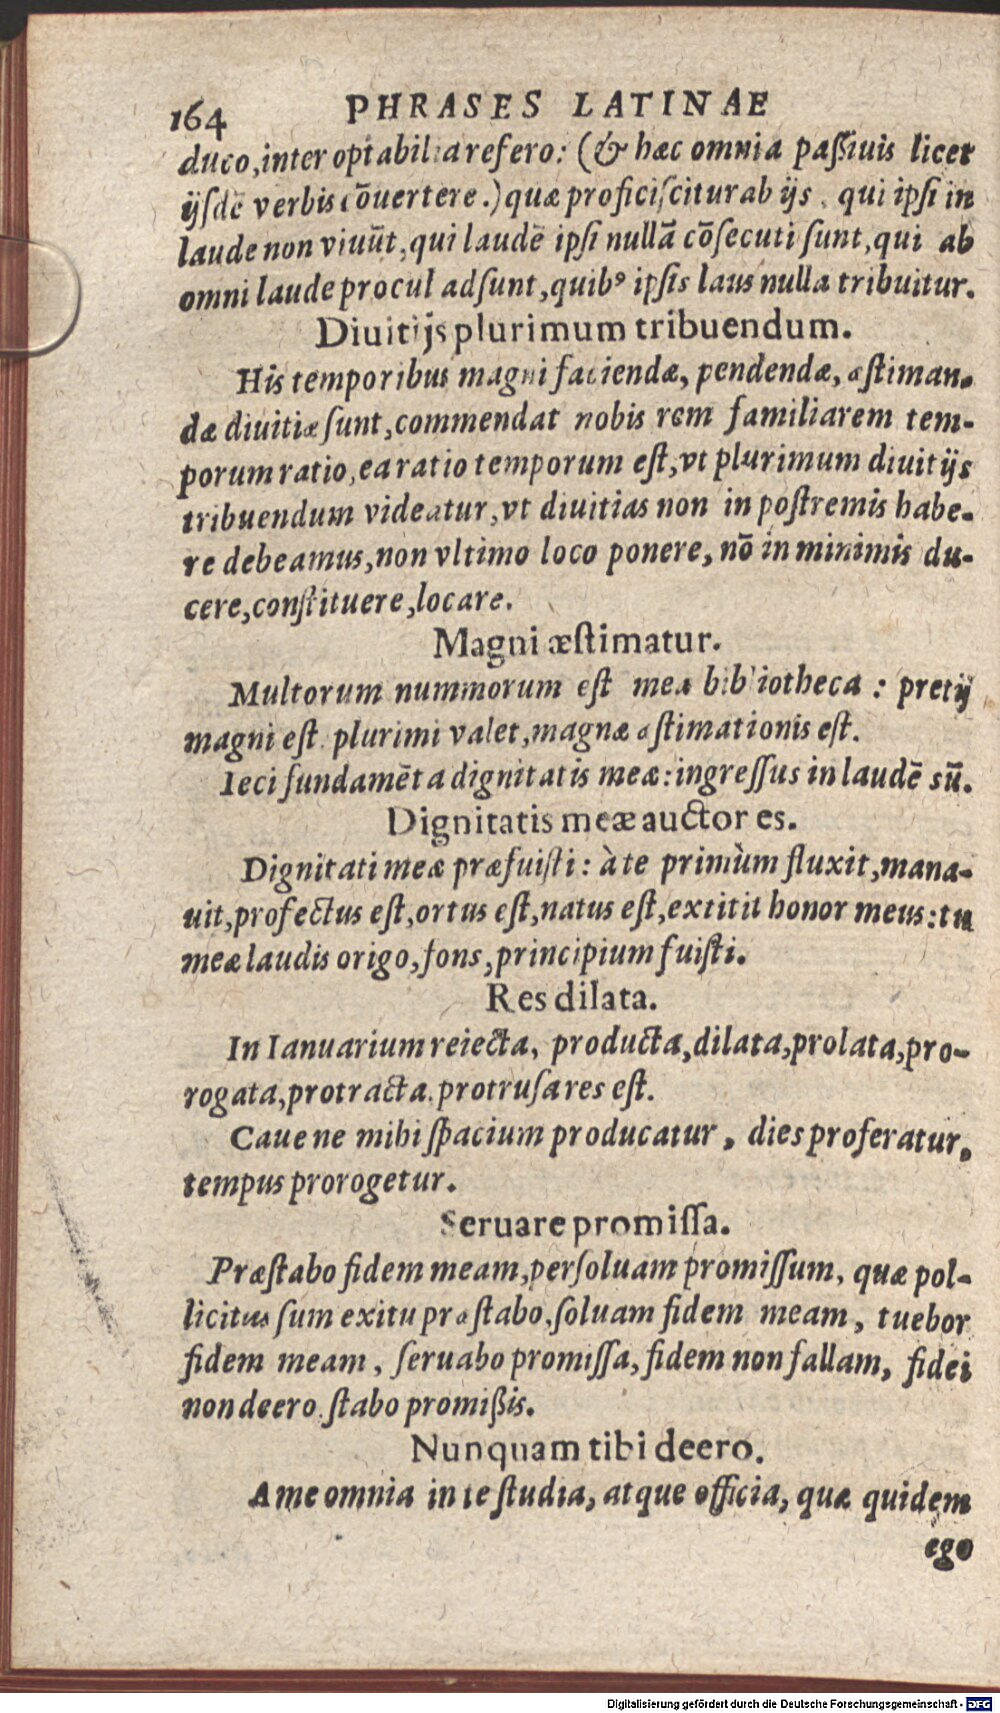 164 PHRASES LATINAE
duco, inter optabilia refero: (& hæc omnia paſſiuis licet
ijſdē verbis cōuertere.) quæ proficiſcitur ab ijs, qui ipſi in
laude non viuūt, qui laudē ipſi nullā cōſecuti ſunt, qui ab
omni laude procul adſunt, quibꝰ ipſis laus nulla tribuitur.
Diuitijs plurimum tribuendum.
His temporibus magni faciendæ, pendendæ, æſtiman-
dæ diuitiæ ſunt, commendat nobis rem familiarem tem-
porum ratio, ea ratio temporum eſt, vt plurimum diuitijs
tribuendum videatur, vt diuitias non in poſtremis habe-
re debeamus, non vltimo loco ponere, nō in minimis du-
cere, conſtituere, locare.
Magni æſtimatur.
Multorum nummorum eſt mea bibliotheca : pretij
magni eſt, plurimi valet, magnæ æſtimationis eſt.
Ieci fundamēta dignitatis meæ: ingreſſus in laudē sū.
Dignitatis meæ auctores.
Dignitati meæ præfuiſti: à te primùm fluxit, mana-
uit, profectus eſt, ortus eſt, natus eſt, extitit honor meus: tu
meæ laudis origo, fons, principium fuiſti.
Res dilata.
In Ianuarium reiecta, producta, dilata, prolata, pro-
rogata, protracta, protruſa res eſt.
Caue ne mihi ſpacium producatur, dies proferatur,
tempus prorogetur.
Seruare promiſſa.
Præſtabo fidem meam, perſoluam promiſſum, quæ pol-
licitus ſum exitu præſtabo, ſoluam fidem meam, tuebor
fidem meam, ſeruabo promiſſa, fidem non fallam, fidei
non deero, ſtabo promißis.
Nunquam tibi deero.
A me omnia in te ſtudia, atque officia, quæ quidem
ego
Digitalisierung gefördert durch die Deutsche Forschungsgemeinschaft - DFG